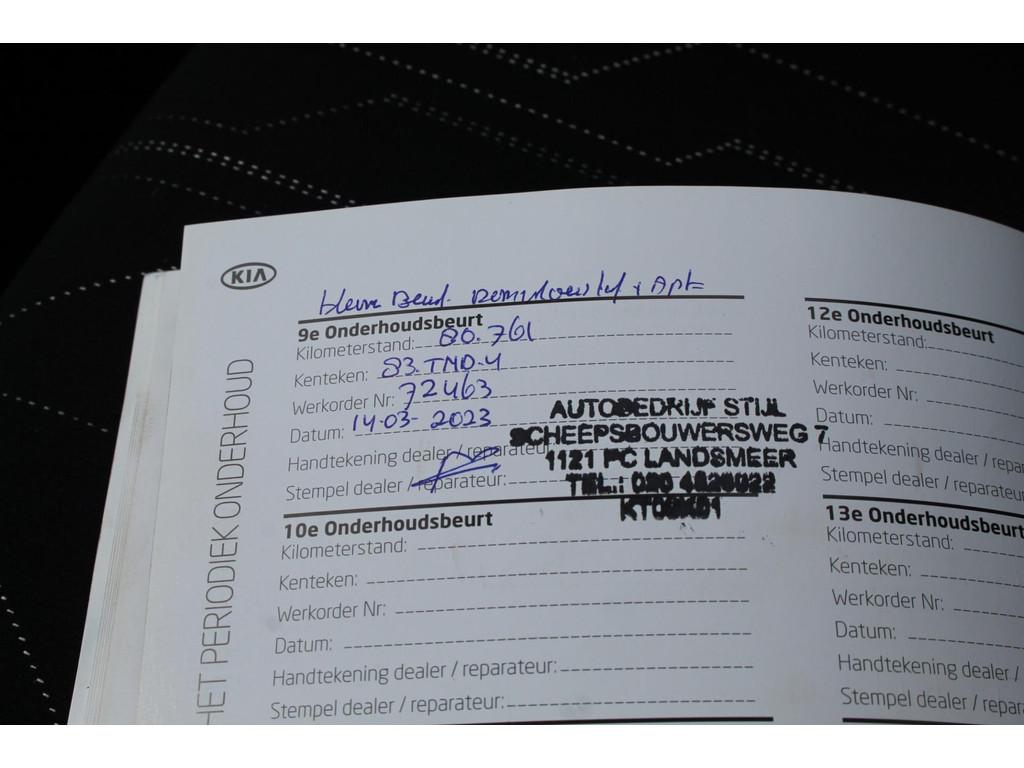 KIA
HET PERIODIEK ONDERHOUD
Beurt. Remvloeistof + Apk
9e Onderhoudsbeurt
Kilometerstand: 80.761
Kenteken:
Werkorder Nr: 72463
Datum: 14-03-2023
Handtekening dealer / reparateur:
Stempel dealer / reparateur:
AUTOBEDRIJF STIJL
SCHEEPSBOUWERSWEG 7
1121 PC LANDSMEER
TEL.: 020
10e Onderhoudsbeurt
Kilometerstand:
Kenteken:
Werkorder Nr:
Datum:
Handtekening dealer / reparateur:
Stempel dealer / reparateur:
12e Onderhoudsbeurt
Kilometerstand:
Kenteken:
Werkorder Nr:
Datum:
Handtekening dealer / repa
Stempel dealer / repar
13e Onderhoudsbeurt
Kilometerstand:
Kenteken:
Werkorder Nr:
Datum:
Handtekening dealer /
Stempel dealer / repar